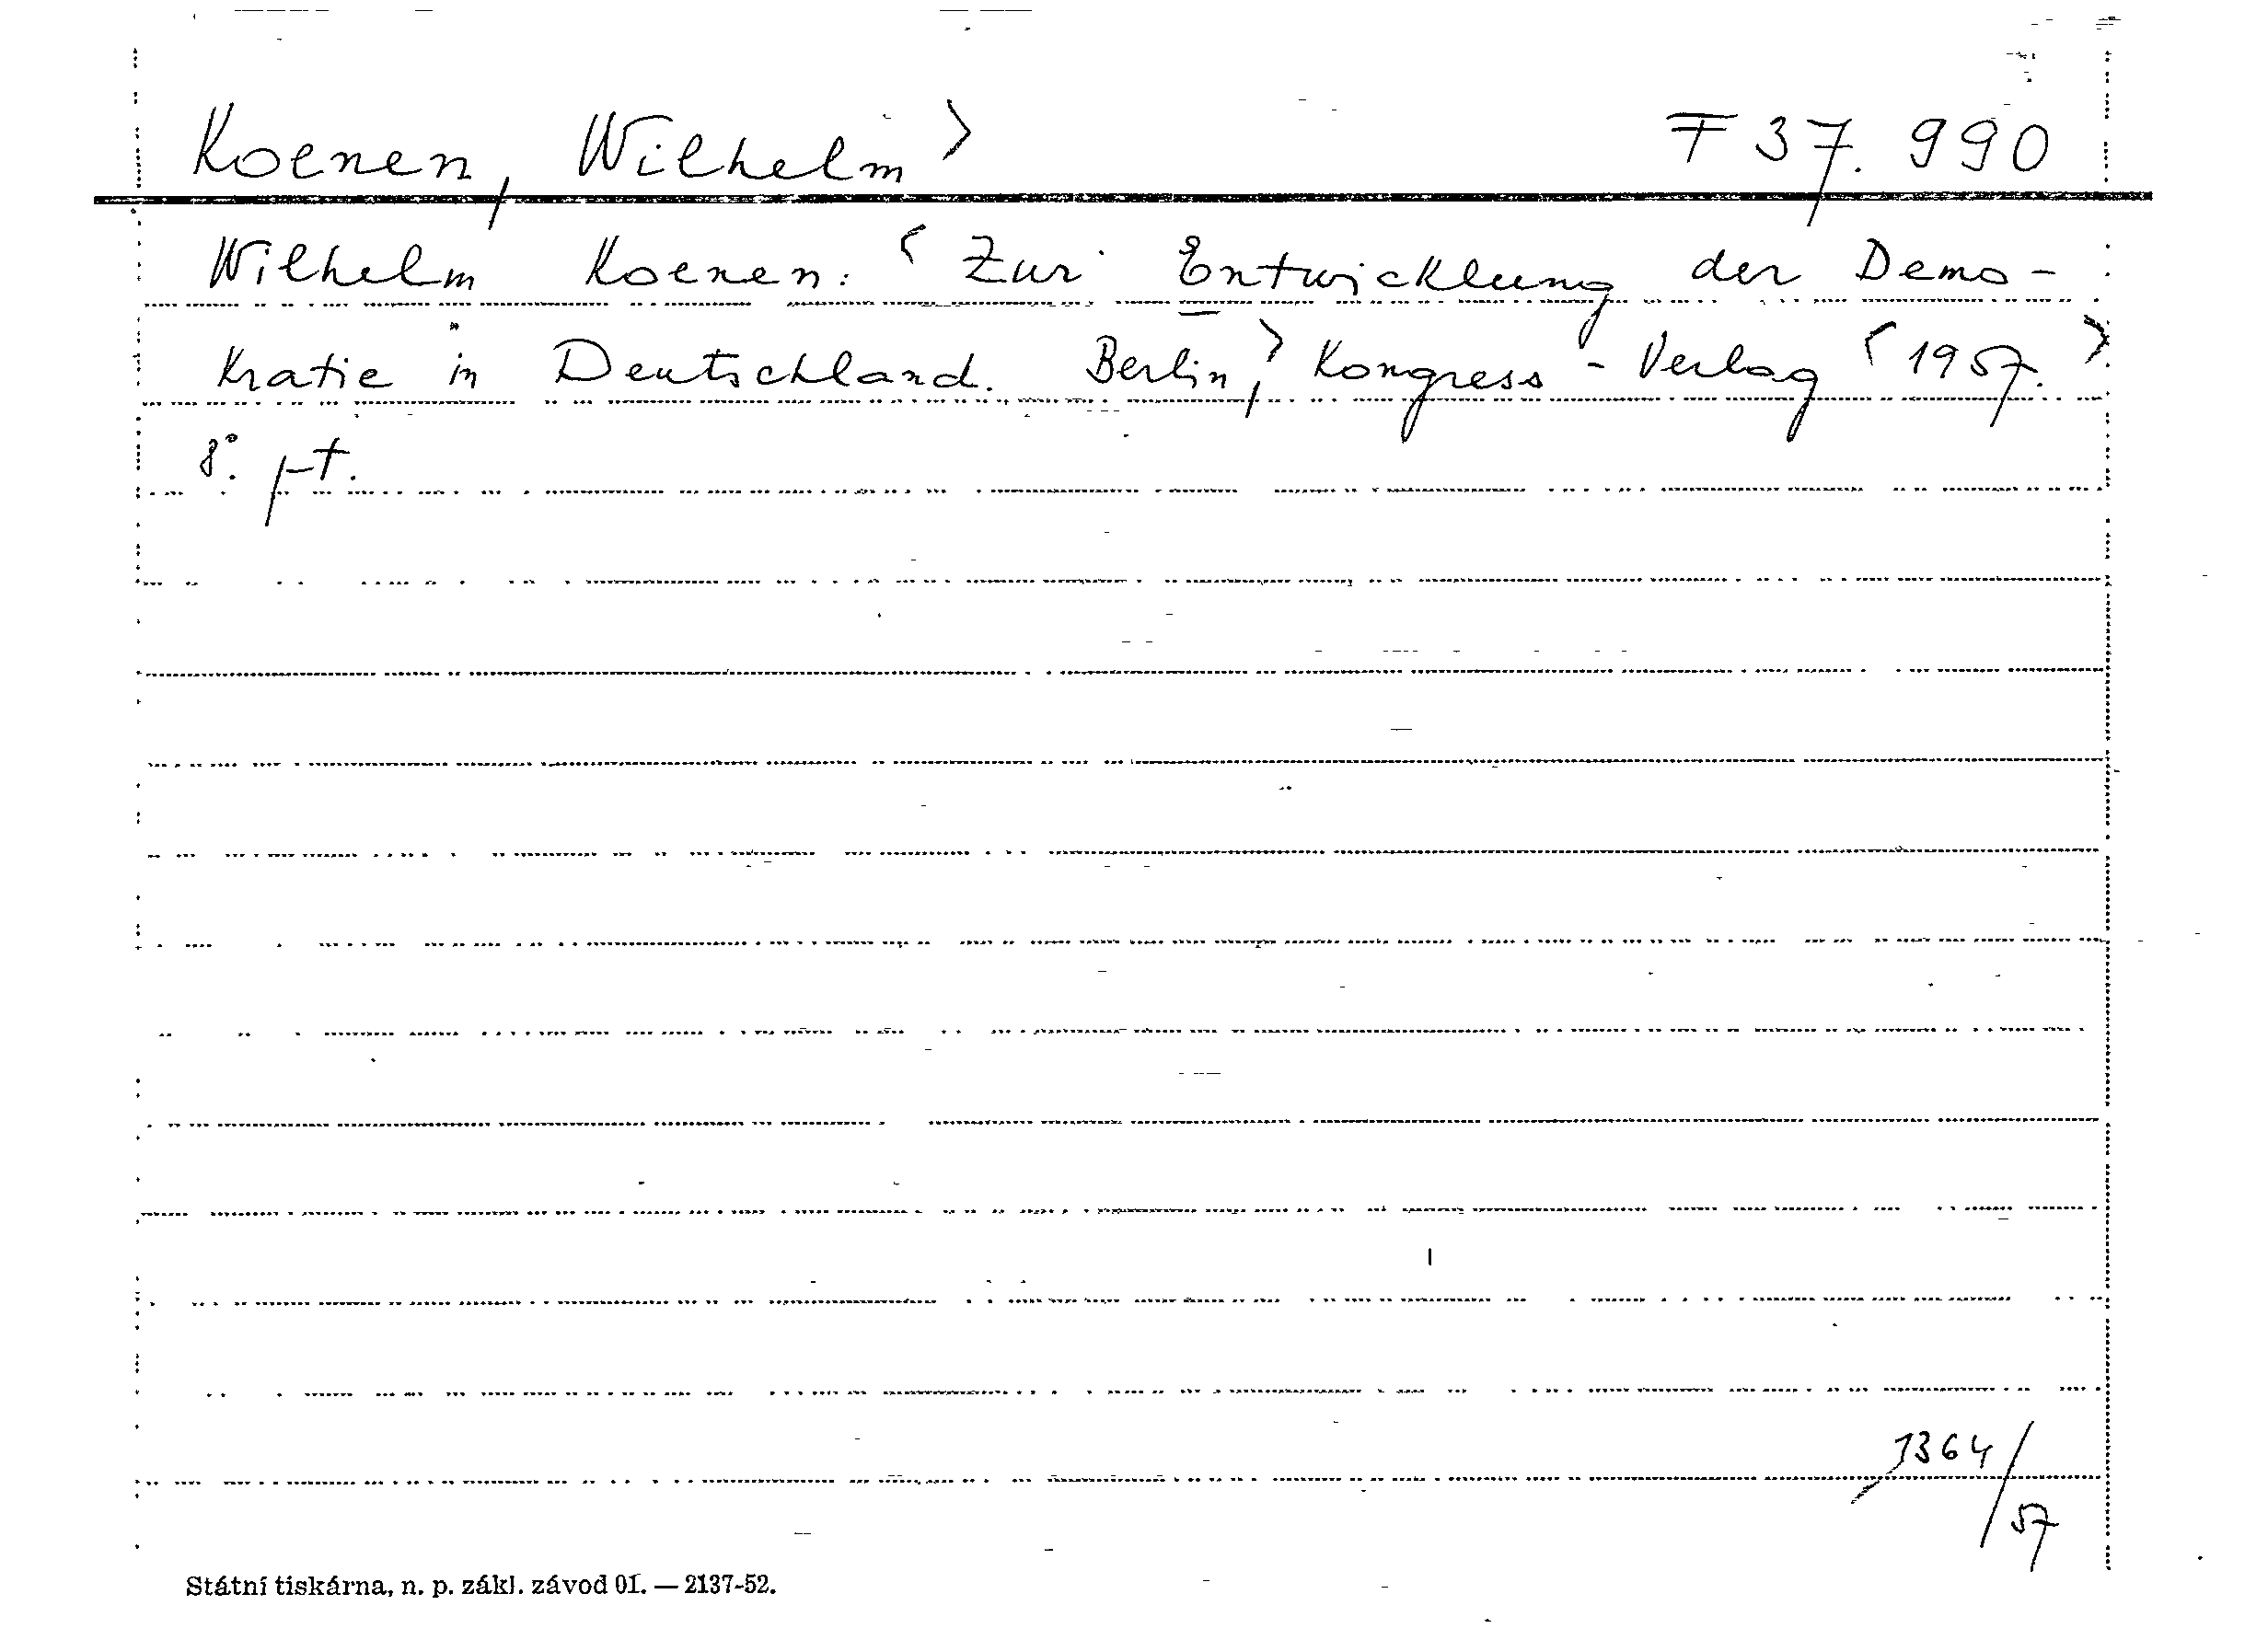 Koenen, Wilhelm > F 37.990
Wilhelm Koenen: < Zur Entwicklung der Demo-
kratie in Deutschland. Berlin, > Kongress-Verlag < 1957. >
8°. pt.
1364/
57
Státní tiskárna, n. p. zákl. závod 01. — 2137-52.